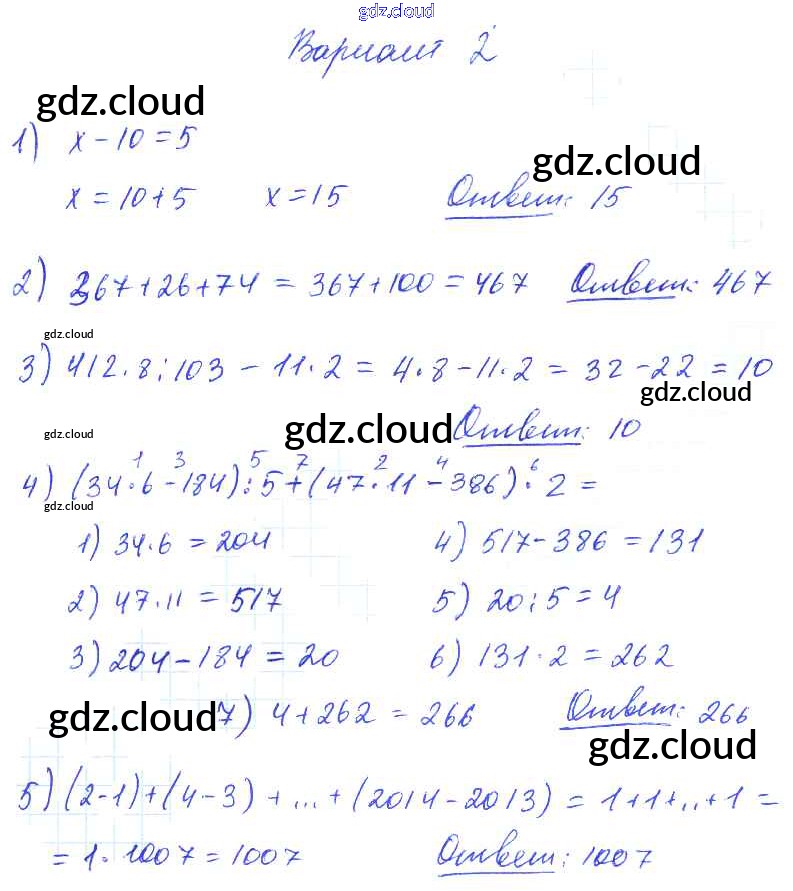 gdz.cloud
Вариант 2
gdz.cloud
1) x - 10 = 5
gdz.cloud
x = 10 + 5 x = 15 Ответ: 15
2) 367 + 26 + 74 = 367 + 100 = 467 Ответ: 467
gdz.cloud
3) 412 · 8 : 103 - 11 · 2 = 4 · 8 - 11 · 2 = 32 - 22 = 10
gdz.cloud
gdz.cloud gdz.cloud Ответ: 10
1 3 5 7 2 4 6
4) (34 · 6 - 184) : 5 + (47 · 11 - 386) · 2 =
gdz.cloud
1) 34 · 6 = 204 4) 517 - 386 = 131
2) 47 · 11 = 517 5) 20 : 5 = 4
3) 204 - 184 = 20 6) 131 · 2 = 262
gdz.cloud 7) 4 + 262 = 266 Ответ: 266
gdz.cloud
5) (2-1) + (4-3) + ... + (2014 - 2013) = 1 + 1 + .. + 1 =
= 1 · 1007 = 1007 Ответ: 1007